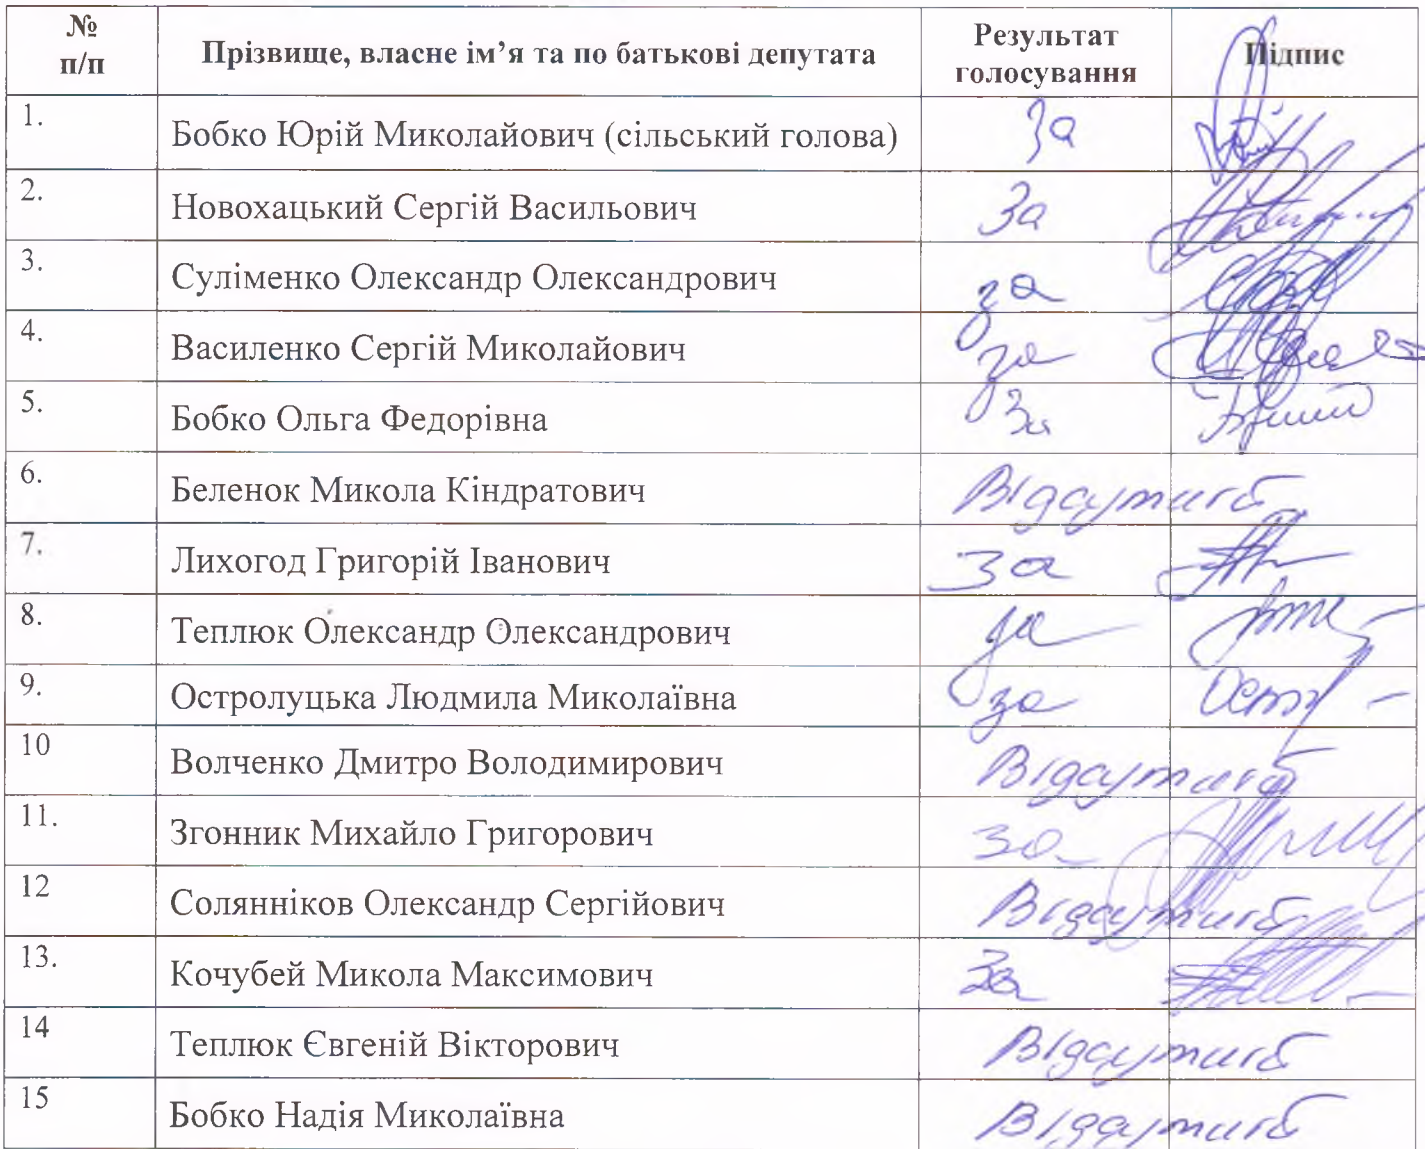 № п/п Прізвище, власне ім’я та по батькові депутата Результат голосування Підпис
1. Бобко Юрій Миколайович (сільський голова) За
2. Новохацький Сергій Васильович За
3. Суліменко Олександр Олександрович за
4. Василенко Сергій Миколайович за
5. Бобко Ольга Федорівна За
6. Беленок Микола Кіндратович Відсутній
7. Лихогод Григорій Іванович За
8. Теплюк Олександр Олександрович за
9. Остролуцька Людмила Миколаївна за
10 Волченко Дмитро Володимирович Відсутній
11. Згонник Михайло Григорович за
12 Солянніков Олександр Сергійович Відсутній
13. Кочубей Микола Максимович За
14 Теплюк Євгеній Вікторович Відсутній
15 Бобко Надія Миколаївна Відсутній